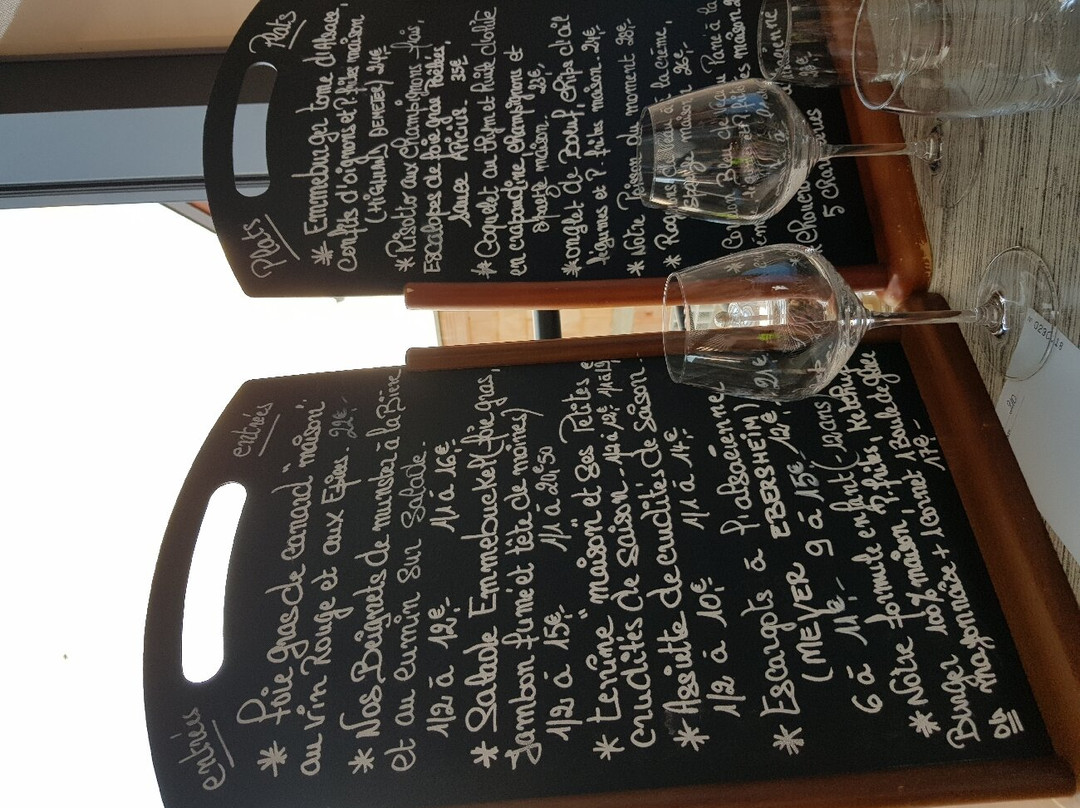 entrées entrées
* foie gras de canard "maison",
au vin Rouge et aux Epices. 22€-
* Nos Beignets de munster à la Bière
et au cumin sur salade.
1/2 à 12€- 1/1 à 16€-
* Salade Emmebuckel (foie gras,
Jambon fumé et tête de moines)
1/2 à 15€- 1/1 à 20€50
* terrine "maison" et ses Petites
crudités de saison - 1/2 à 12€ 1/1 à
* Assiette de crudités de saison.
1/2 à 10€- 1/1 à 14€-
* Escargots à l'alsacienne
(MEYER EBERSHEIM)
6 à 11€- 9 à 15€- 12€ - 21€
* Notre formule enfant (-12 ans
Burger 100% maison, P. frites, Ketchup
mayonnaise + 1 cornet 1 Boule de glace
17€-
Plats Plats
* Emmeburger tome d'Alsace,
Confits d'oignons et P. frites maison
(HIGHLANDS DEMETER) 24€
* Risotto aux champignons frais,
Escalopes de foie gras Poêlées,
sauce Apicius. 35€
* Coquelet au thym et Huile d'olive
en crapaudine, champignons et
spaetzle maison. 23€-
* onglet de Boeuf, chips d'ail
légumes et P. frites maison. 24€
* Notre Poisson du moment 28€-
* la crème,
maison 26€-
Bleu Pané à la
maison
* 
5